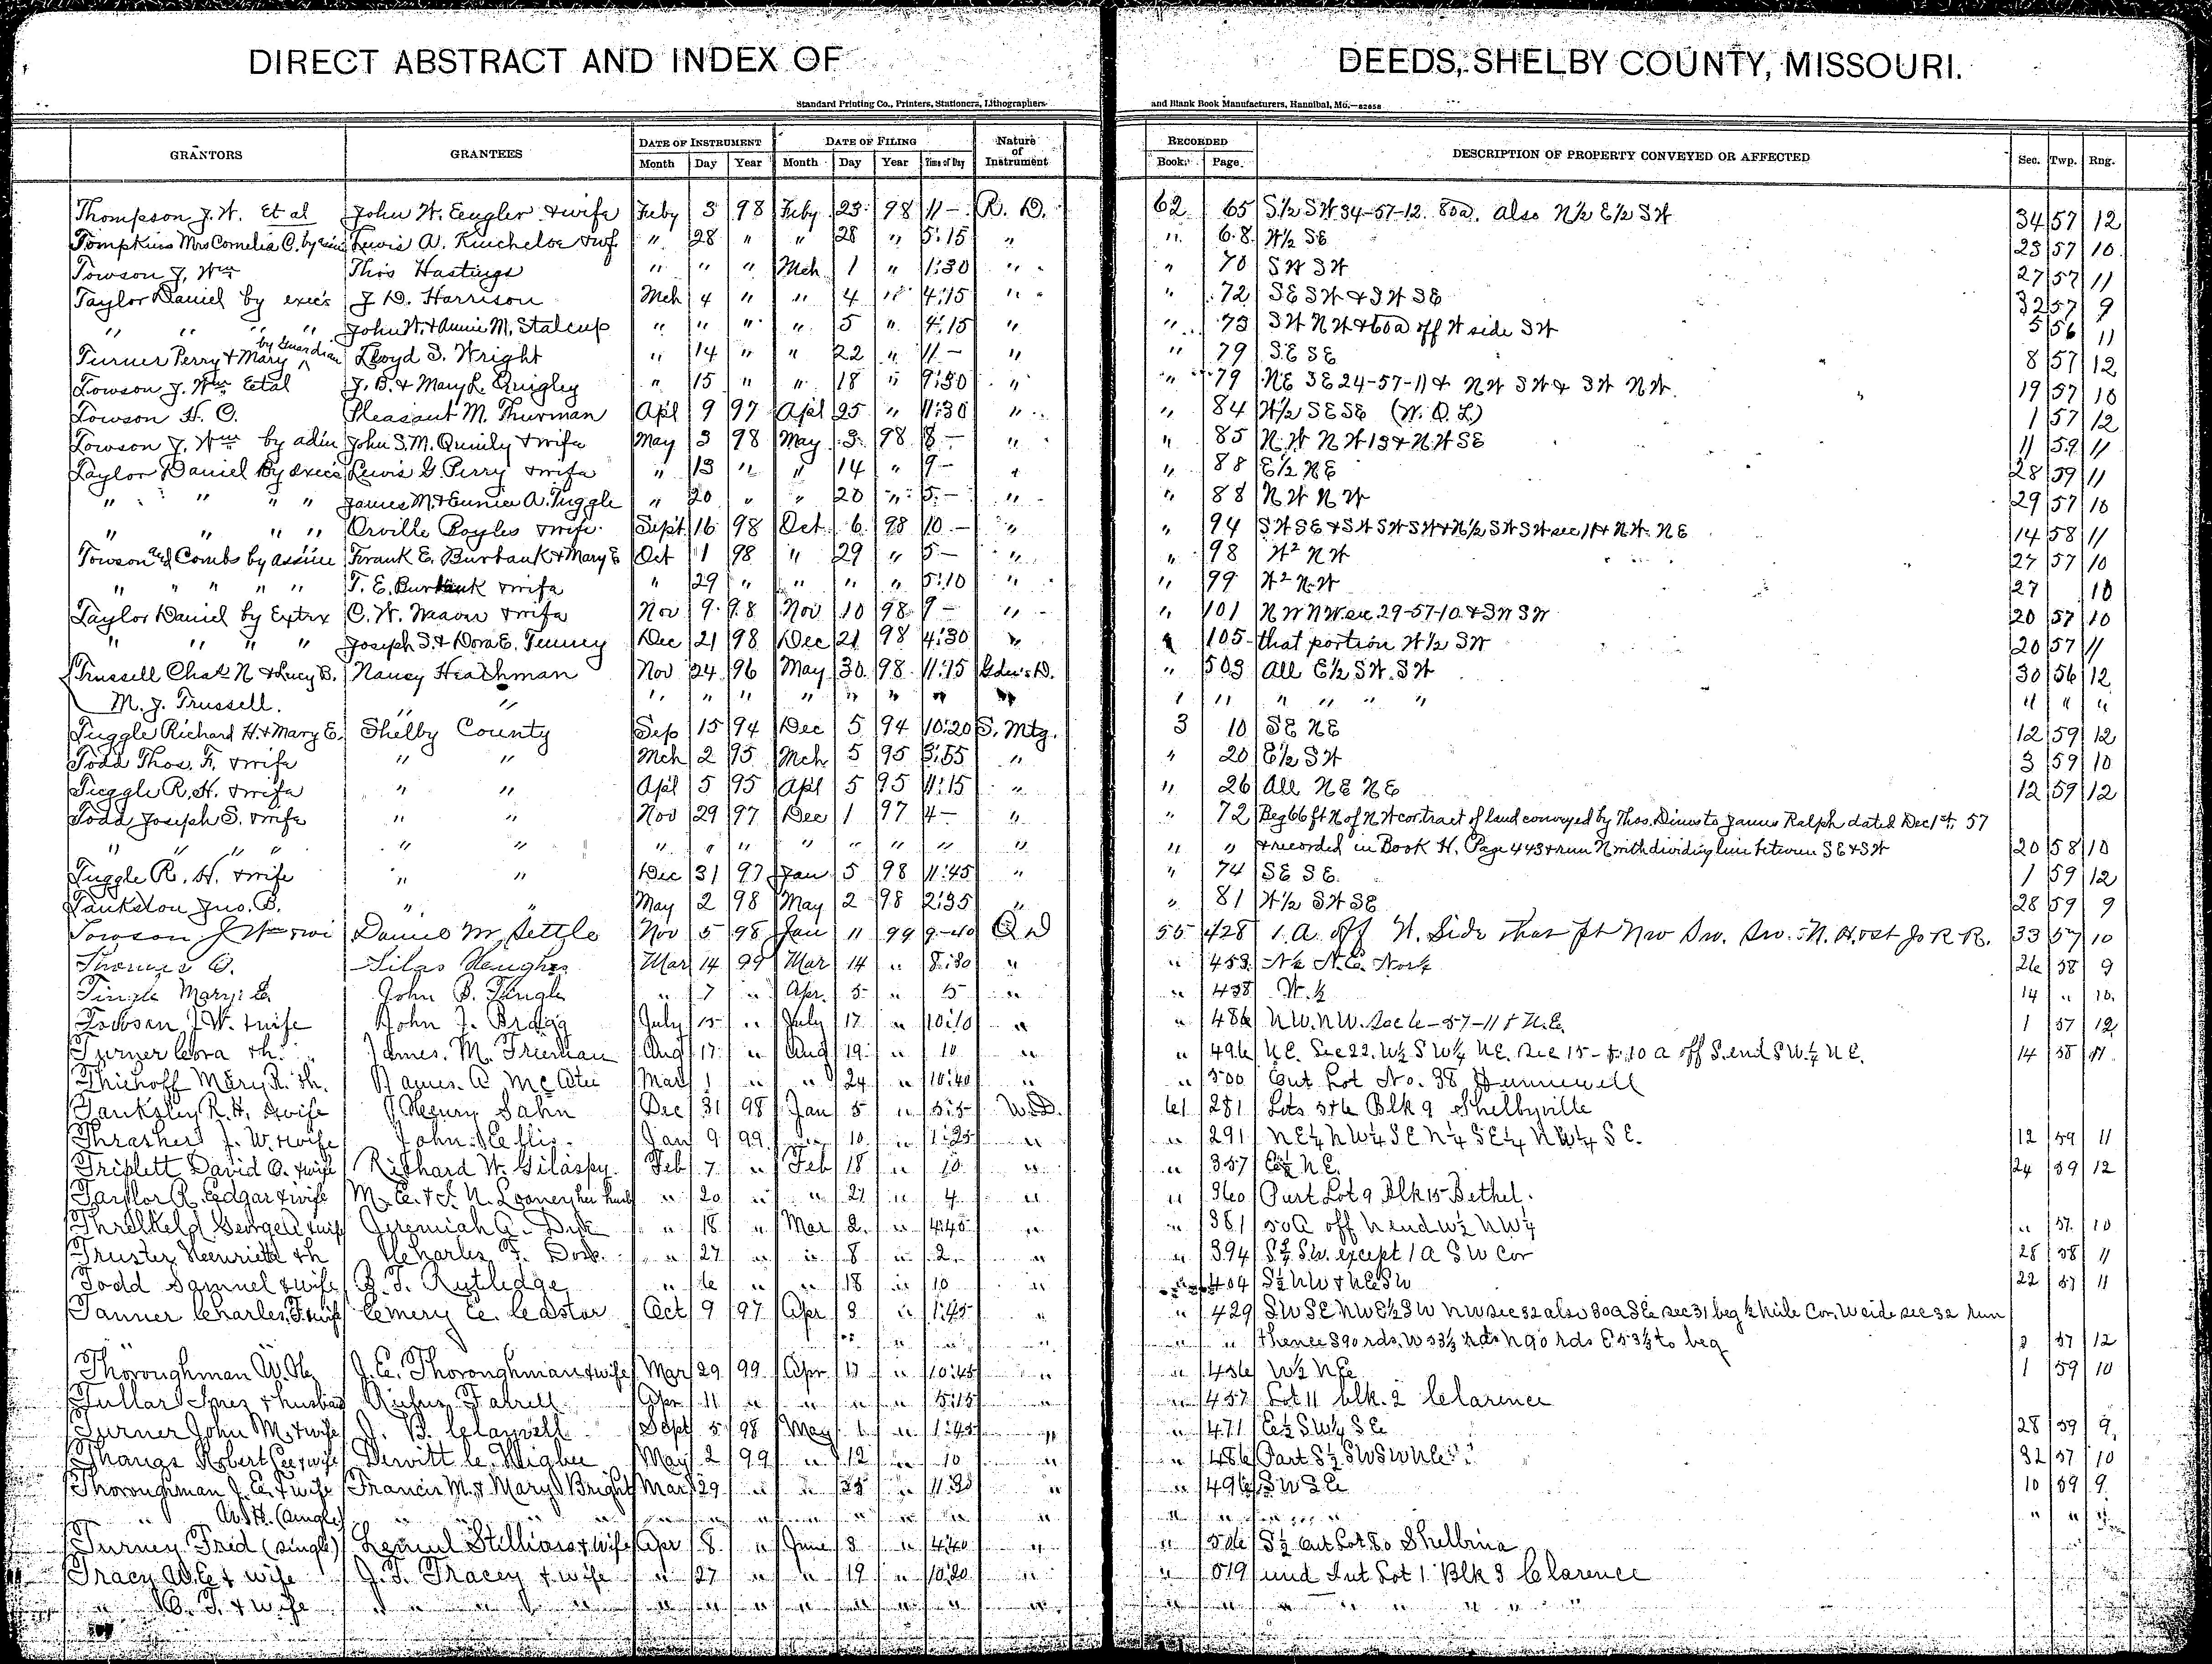 DIRECT ABSTRACT AND INDEX OF DEEDS, SHELBY COUNTY, MISSOURI.
Standard Printing Co., Printers, Stationers, Lithographers and Blank Book Manufacturers, Hannibal, Mo.—82658
GRANTORS GRANTEES DATE OF INSTRUMENT DATE OF FILING Nature of Instrument RECORDED DESCRIPTION OF PROPERTY CONVEYED OR AFFECTED Sec. Twp. Rng.
Month Day Year Month Day Year Time of Day Book Page.
Thompson J. W. Et al John W. Eengler & wife Feby 3 98 Feby 23 98 11 – R. D. 62 65 S½ SW 34-57-12. 80a. also N½ E½ SW 34 57 12
Tompkins Mrs Cornelia C. by Lewis A. Kincheloe & wf. " 28 " " 28 " 5:15 " " 68 W½ SE 23 57 10
Towson J. Wm Tho's Hastings " " " Mch 1 " 1:30 " " 70 SW SW 27 57 11
Taylor Daniel by exec's J. D. Harrison Mch 4 " " 4 " 4:15 " " 72 SE SW & SW SE 32 57 9
" " " " John W. & Annie M. Stalcup " " " " 5 " 4:15 " " 73 SW NW & 60a off W side SW 5 56 11
Turner Perry & Mary by Guardian Lloyd S. Wright " 14 " " 22 " 11 – " " 79 SE SE 8 57 12
Towson J. Wm Et al J. B. & Mary L. Quigley " 15 " " 18 " 9:30 " " 79 NE SE 24-57-11 & NW SW & SW NW. 19 57 10
Towson H. C. Pleasant M. Thurman Apl 9 97 Apl 25 " 11:30 " " 84 W½ SE SE (W. O. L.) 1 57 12
Towson J. Wm by adm John S. M. Quinly & wife May 3 98 May 3 98 8 – " " 85 N.W NW 13 & NW SE 11 59 11
Taylor Daniel By exec's Lewis G. Perry & wife " 13 " " 14 " 9 – " " 88 E½ NE 28 59 11
" " " " James M. & Eunice A. Tuggle " 20 " " 20 " 5 – " " 88 NW NW 29 57 10
" " " " Orville Boyles & wife Sept 16 98 Oct 6 98 10 – " " 94 SW SE & SW SW & N½ SW SW sec 11 & NW NE 14 58 11
Towson and Combs by Frank E. Burbank & Mary E Oct 1 98 " 29 " 5 – " " 98 W² NW 27 57 10
" " " " " T. E. Burbank & wife " 29 " " " " 5:10 " " 99 W² N.W 27 10
Taylor Daniel by Extrx C. W. Weaver & wife Nov 9 98 Nov 10 98 9 – " " 101 NW NW sec 29-57-10 & SW SW 20 57 10
" " " " Joseph S. & Dora E. Tenney Dec 21 98 Dec 21 98 4:30 " " 105 that portion W½ SW 20 57 11
Trussell Chas N & Lucy B. Nancy Heathman Nov 24 96 May 30 98 11:15 " 503 All E½ SW. SW 30 56 12
M. J. Trussell. " " " " " " " " " " " " " " " " " " "
Tuggle Richard H. & Mary E. Shelby County Sep 15 94 Dec 5 94 10:20 S. Mtg. 3 10 SE NE 12 59 12
Todd Thos. F. & wife " " Mch 2 95 Mch 5 95 3:55 " " 20 E½ SW 3 59 10
Tuggle R. H. & wife " " Apl 5 95 Apl 5 95 11:15 " " 26 All NE NE 12 59 12
Todd Joseph S. & wife " " Nov 29 97 Dec 1 97 4 – " " 72 Beg 66 ft N of NW cor tract of land conveyed by Thos. Dines to James Ralph dated Dec 1st, 57
" " " " " " " " " " " " " " " " & recorded in Book H. Page 443 & run N with dividing line between SE & SW 20 58 10
Tuggle R. H. & wife " " Dec 31 97 Jan 5 98 11:45 " " 74 SE SE. 1 59 12
Tankston Jno. B. " " May 2 98 May 2 98 2:35 " " 81 W½ SW SE 28 59 9
Towson J Wm & wi Daniel M. Settle Nov 5 98 Jan 11 99 9-40 Q D 55 428 1. A. off W. Side that pt NW SW. SW. N. H. & St Jo R R. 33 57 10
Thomas O. Silas Vaughn Mar 14 99 Mar 14 " 8:30 " " 453 26 58 9
Tingle Mary E. John B. Tingle " 7 " Apr. 5 " 5 " " 458 W. ½ 14 " 10.
Towson J. W. & wife John J. Bragg July 15 " July 17 " 10:10 " " 486 NW. NW. Sec 6-57-11 & N.E. 1 57 12
Turner Cora & h. James. M. Frieman Aug 17 " Aug 19 " 10 " " 496 NE. Sec 22. W½ SW¼ NE. Sec 15 - & 10 a off S. end SW¼ NE. 14 58 11
Thiehoff Mary R. & h. James. A. McAtee Mar 1 " " 24 " 10:40 " " 500 Out Lot No. 38 Hunnewell
Tanksley R. H. & wife Henry Sahn Dec 31 98 Jan 5 " 5:5 W.D. 61 281 Lots 5 & 6 Blk 9 Shelbyville
Thrasher J. W. & wife John Jan 9 99 " 10 " 1:25 " " 291 NE¼ NW¼ SE N¼ SE¼ NW¼ SE. 12 59 11
Triplett David A. & wife Richard W. Gilaspy Feb 7 " Feb 18 " 10 " " 357 E½ NE. 24 59 12
Taylor R. Edgar & wife M. E. & J. N. Looney her husb " 20 " " 21 " 4 " " 360 Part Lot 9 Blk 15 Bethel.
Threlkeld George A & wife Jeremiah A. Dirk " 18 " Mar 2 " 4:45 " " 381 50A off N end W½ NW¼ " 57 10
Truster Henrietta & h Charles F. Dosk " 27 " " 8 " 2 " " 394 S½ SW. except 1 A SW Cor 28 58 11
Todd Samuel & wife B. F. Rutledge " 6 " " 18 " 10 " " 404 S½ NW & NE SW 22 57 11
Tanner Charles F. & wife Emery E. Eastor Oct 9 97 Apr 3 " 1:45 " " 429 SW SE NW E½ SW NW sec 32 also 30a SE sec 31 beg ½ mile Cor. W side sec 32 run
" " " " thence S 90 rds. W 53⅓ rds N 90 rds E 53⅓ to beg 57 12
Thoroughman W. H. J. E. Thoroughman & wife Mar 29 99 Apr 11 " 10:45 " " 456 W½ NE 1 59 10
Tullar Inez & husband Rufus Farrell Apr 11 " " " " 5:15 " " 457 Lot 11 blk. 2 Clarence
Turner John M. & wife J. B. Claywell Sept 5 98 May 1 " 1:45 " " 471 E½ SW¼ SE 28 59 9
Thangs Robert Lee & wife Dewitt C. Higbee May 2 99 " 12 " 10 " " 486 Part S½ SW SW NE 32 57 10
Thoroughman J. E. & wife Francis M. & Mary J Bright Mar 29 " " 25 " 11:30 " " 496 SW SE 10 59 9
" W. H. (single) " " " " " " " " " " " " "
Turney Fred (single) Lemuel Stillions & wife Apr 8 " June 3 " 4:40 " " 506 S½ Out Lot 80 Shelbina
Tracy W. E. & wife J. F. Tracey & wife " 27 " " 19 " 10:20 " " 519 und Int Lot 1 Blk 3 Clarence
" C. T. & wife " " " " " " " " " " " " " "